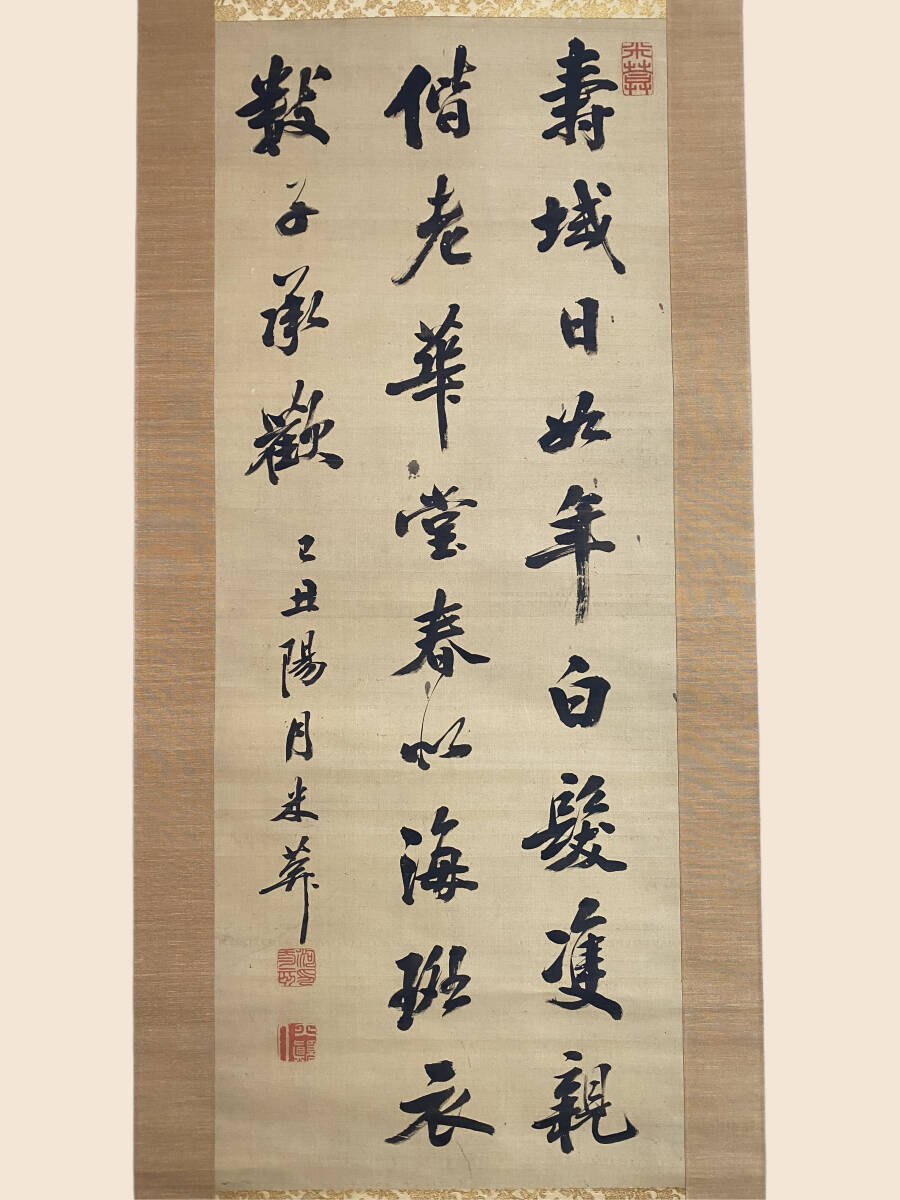 壽域日如年白髮雙親
偕老華堂春似海斑衣
數子承歡
己丑陽月米葊
米葊